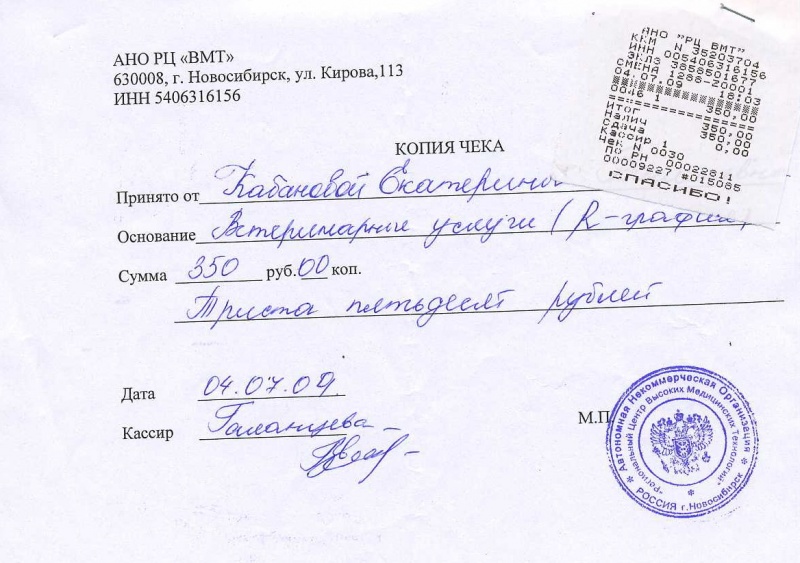 АНО РЦ «ВМТ»
630008, г. Новосибирск, ул. Кирова,113
ИНН 5406316156
АНО "РЦ ВМТ"
ККМ N 35203704
ИНН 005406316156
ЭКЛЗ 3858501677
СМЕНА 1286-20001
04.07.09 18:03
0046 1 350,00
ИТОГ 350,00
Налич 350,00
Сдача 0,00
Кассир 1
Чек N 0030
ПО РН 00022611
00009227 #015085
СПАСИБО!
КОПИЯ ЧЕКА
Принято от Кабановой Екатерины
Основание Ветеринарные услуги (R-графия)
Сумма 350 руб. 00 коп.
Триста пятьдесят рублей
Дата 04.07.09
Кассир Галанцева
М.П.
Автономная Некоммерческая Организация
"Региональный Центр Высоких Медицинских Технологий"
РОССИЯ г.Новосибирск